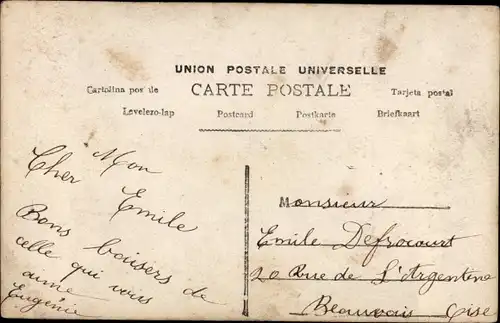 UNION POSTALE UNIVERSELLE
CARTE POSTALE
Cartolina postale
Tarjeta postal
Levelezo-lap
Postcard
Postkarte
Briefkaart
Mon
Cher Emile
Bons baisers de
celle qui vous
aime
Eugénie
Monsieur
Emile Defrocourt
20 Rue de L'Argentine
Beauvais Oise